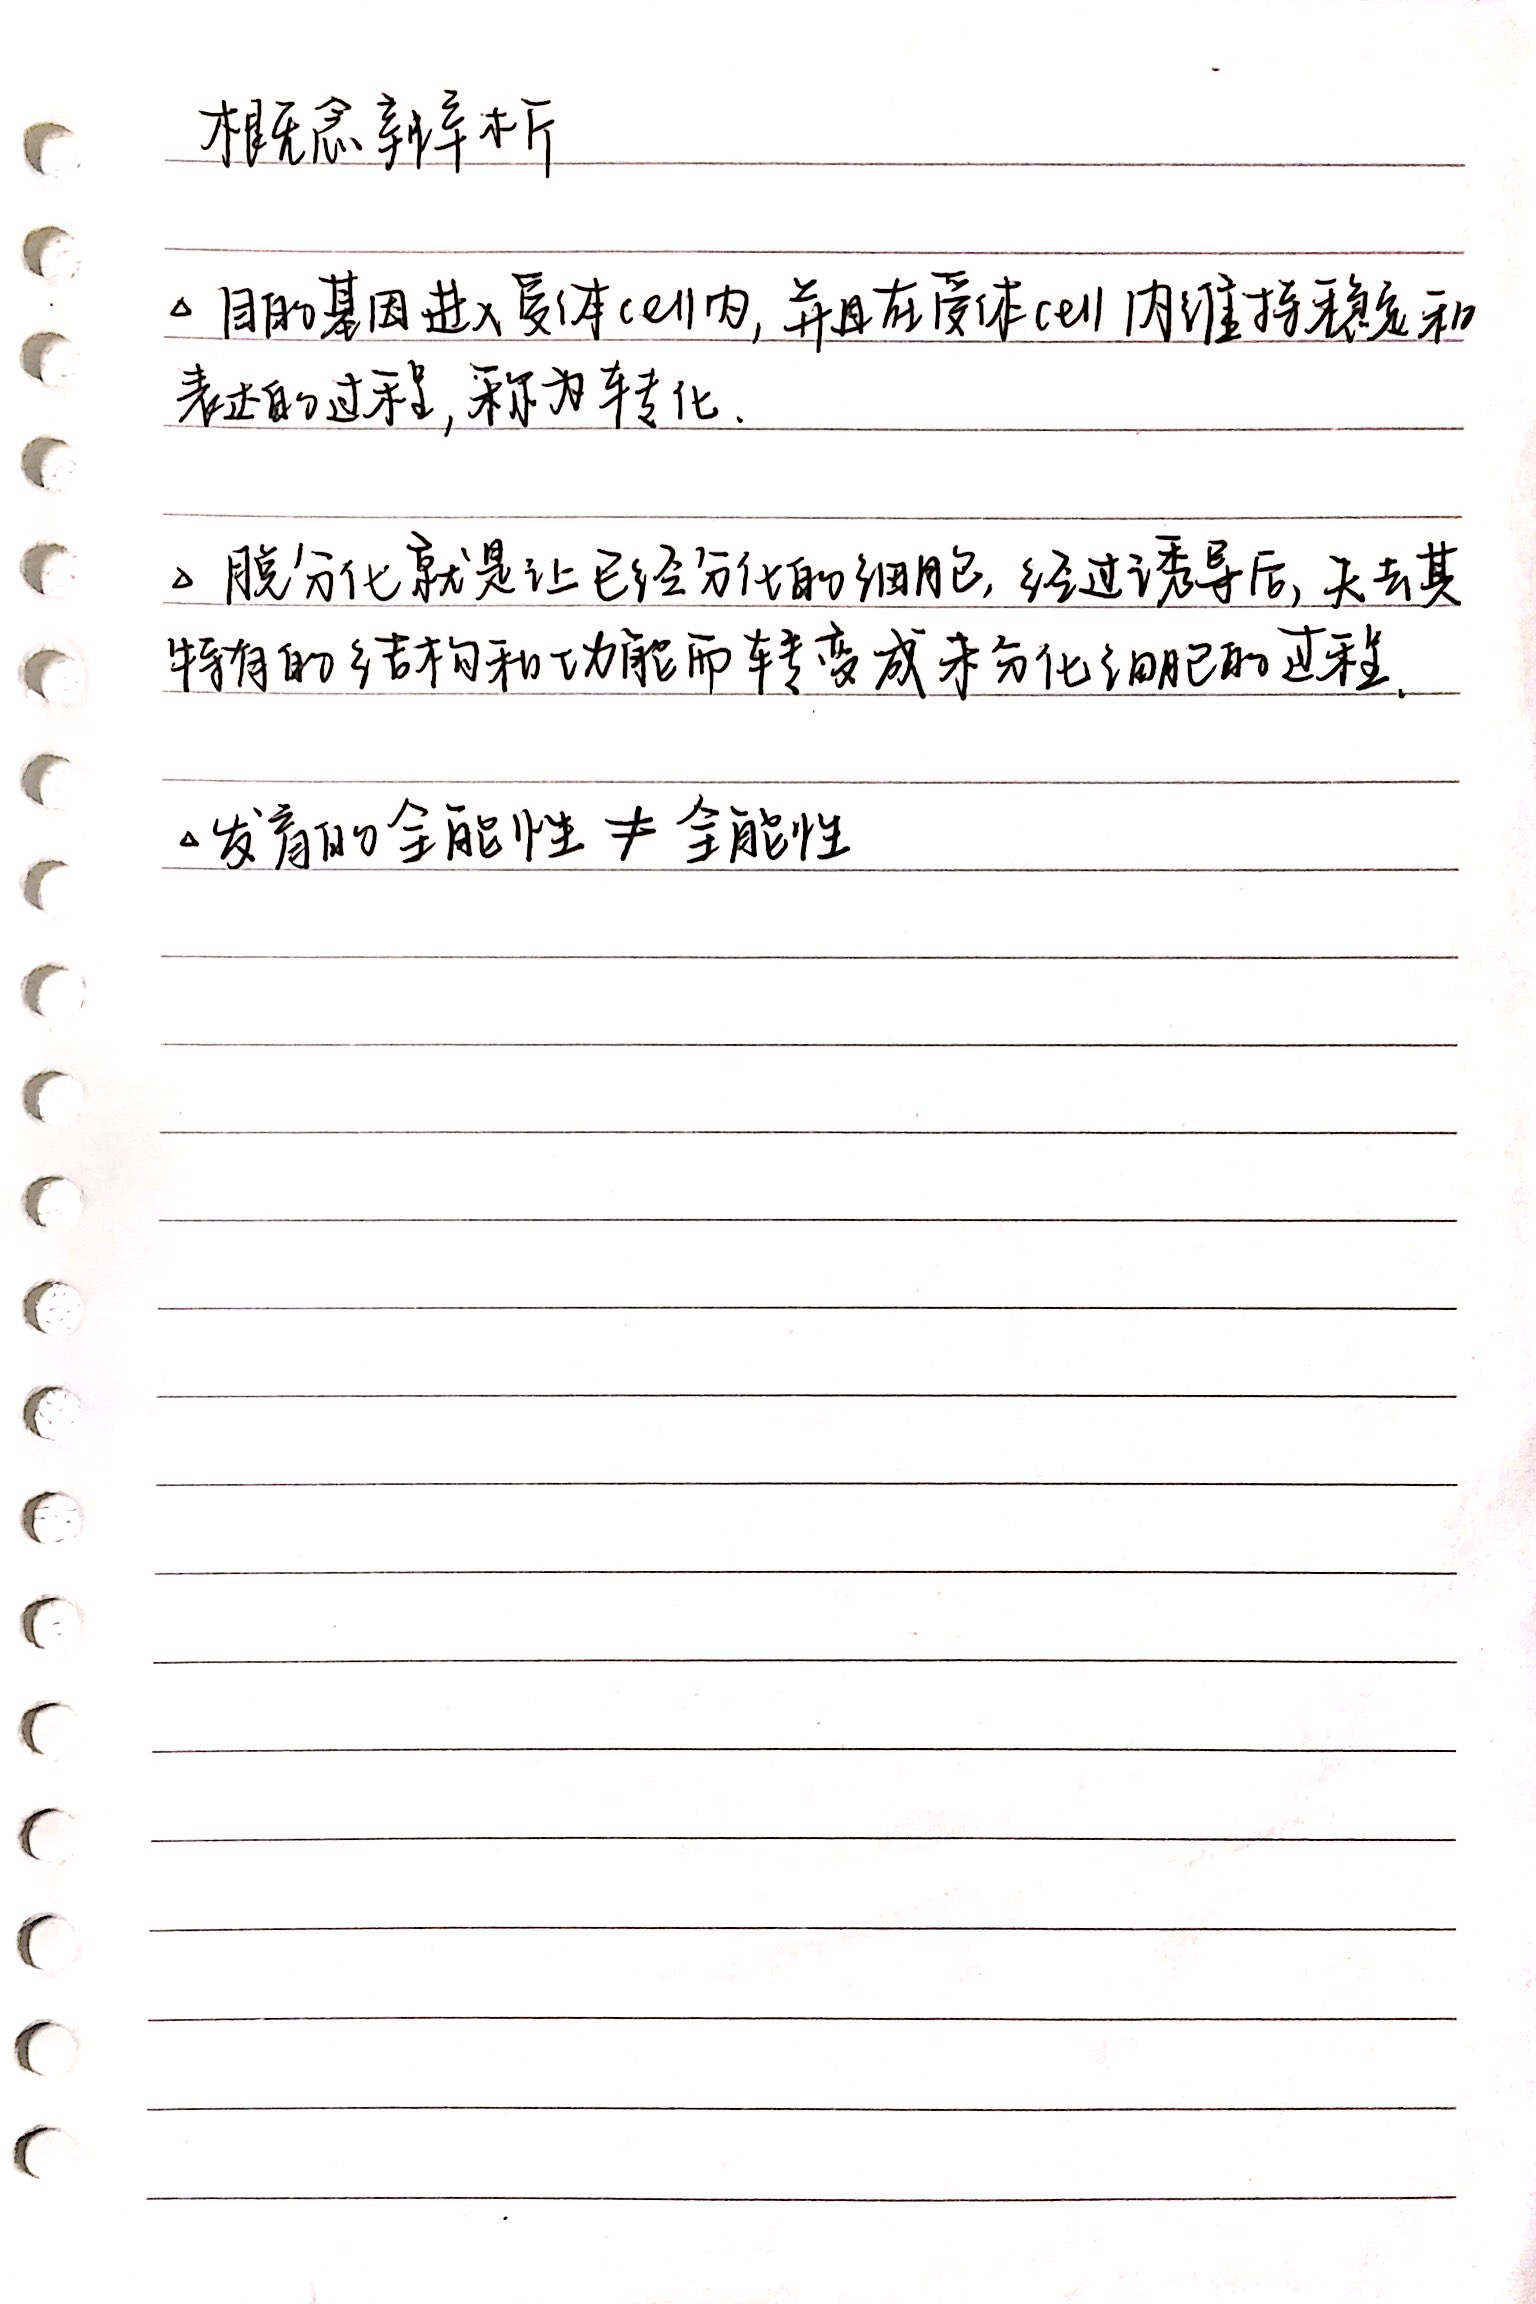 概念辨析
△ 目的基因进入受体cell内, 并且在受体cell内维持稳定和
表达的过程, 称为转化.
△ 脱分化就是让已经分化的细胞, 经过诱导后, 失去其
特有的结构和功能而转变成未分化细胞的过程.
△ 发育的全能性 ≠ 全能性